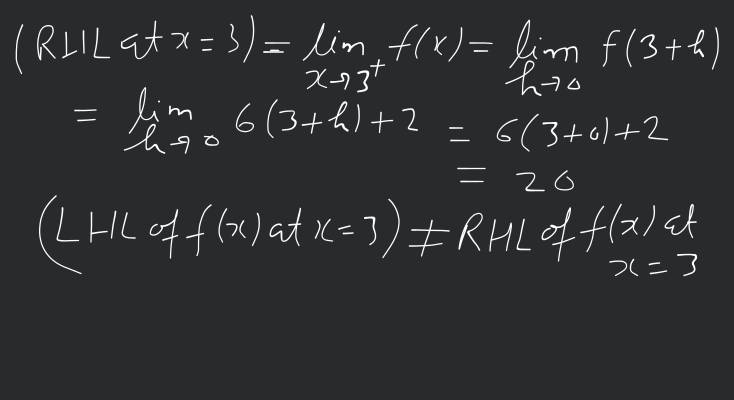 (RHL at x = 3) = lim x→3⁺ f(x) = lim h→0 f(3+h)
= lim h→0 6(3+h)+2 = 6(3+0)+2
= 20
(LHL of f(x) at x = 3) ≠ RHL of f(x) at
x = 3